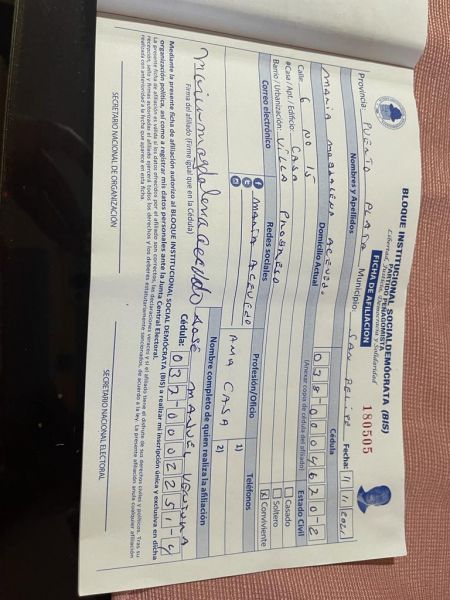 BLOQUE INSTITUCIONAL SOCIALDEMÓCRATA (BIS)
PARTIDO PEÑAGOMISTA
Libertad, Justicia, Democracia y Solidaridad
FICHA DE AFILIACION
180505
Provincia: PUERTO PLATA Municipio: SAN FELIPE Fecha: 11/1/2021
Nombres y Apellidos Cédula
MARIA MAGDALENA ACEVEDO 038-0004620-2
Domicilio Actual (Anexar copia de cédula del afiliado) Estado Civil
Calle: 6 NO 15
#Casa / Apt. / Edificio: CASA
Barrio / Urbanización: VILLA PROGRESO
Casado
Soltero
Conviviente
Correo electrónico Redes sociales Profesión/Oficio Teléfonos
MARIA ACEVEDO AMA CASA 1)
2)
Nombre completo de quien realiza la afiliación
JOSÉ MANUEL VENTURA
Maria magdalena acevedo
Cédula: 037-0002251-4
(Firma del afiliado) (Firme igual que en la Cédula)
Mediante la presente ficha de afiliación autorizo al BLOQUE INSTITUCIONAL SOCIAL DEMÓCRATA (BIS) a realizar mi inscripción única y exclusiva en dicha
organización política, así como a registrar mis datos personales ante la Junta Central Electoral.
SECRETARIO NACIONAL DE ORGANIZACIÓN SECRETARIO NACIONAL ELECTORAL